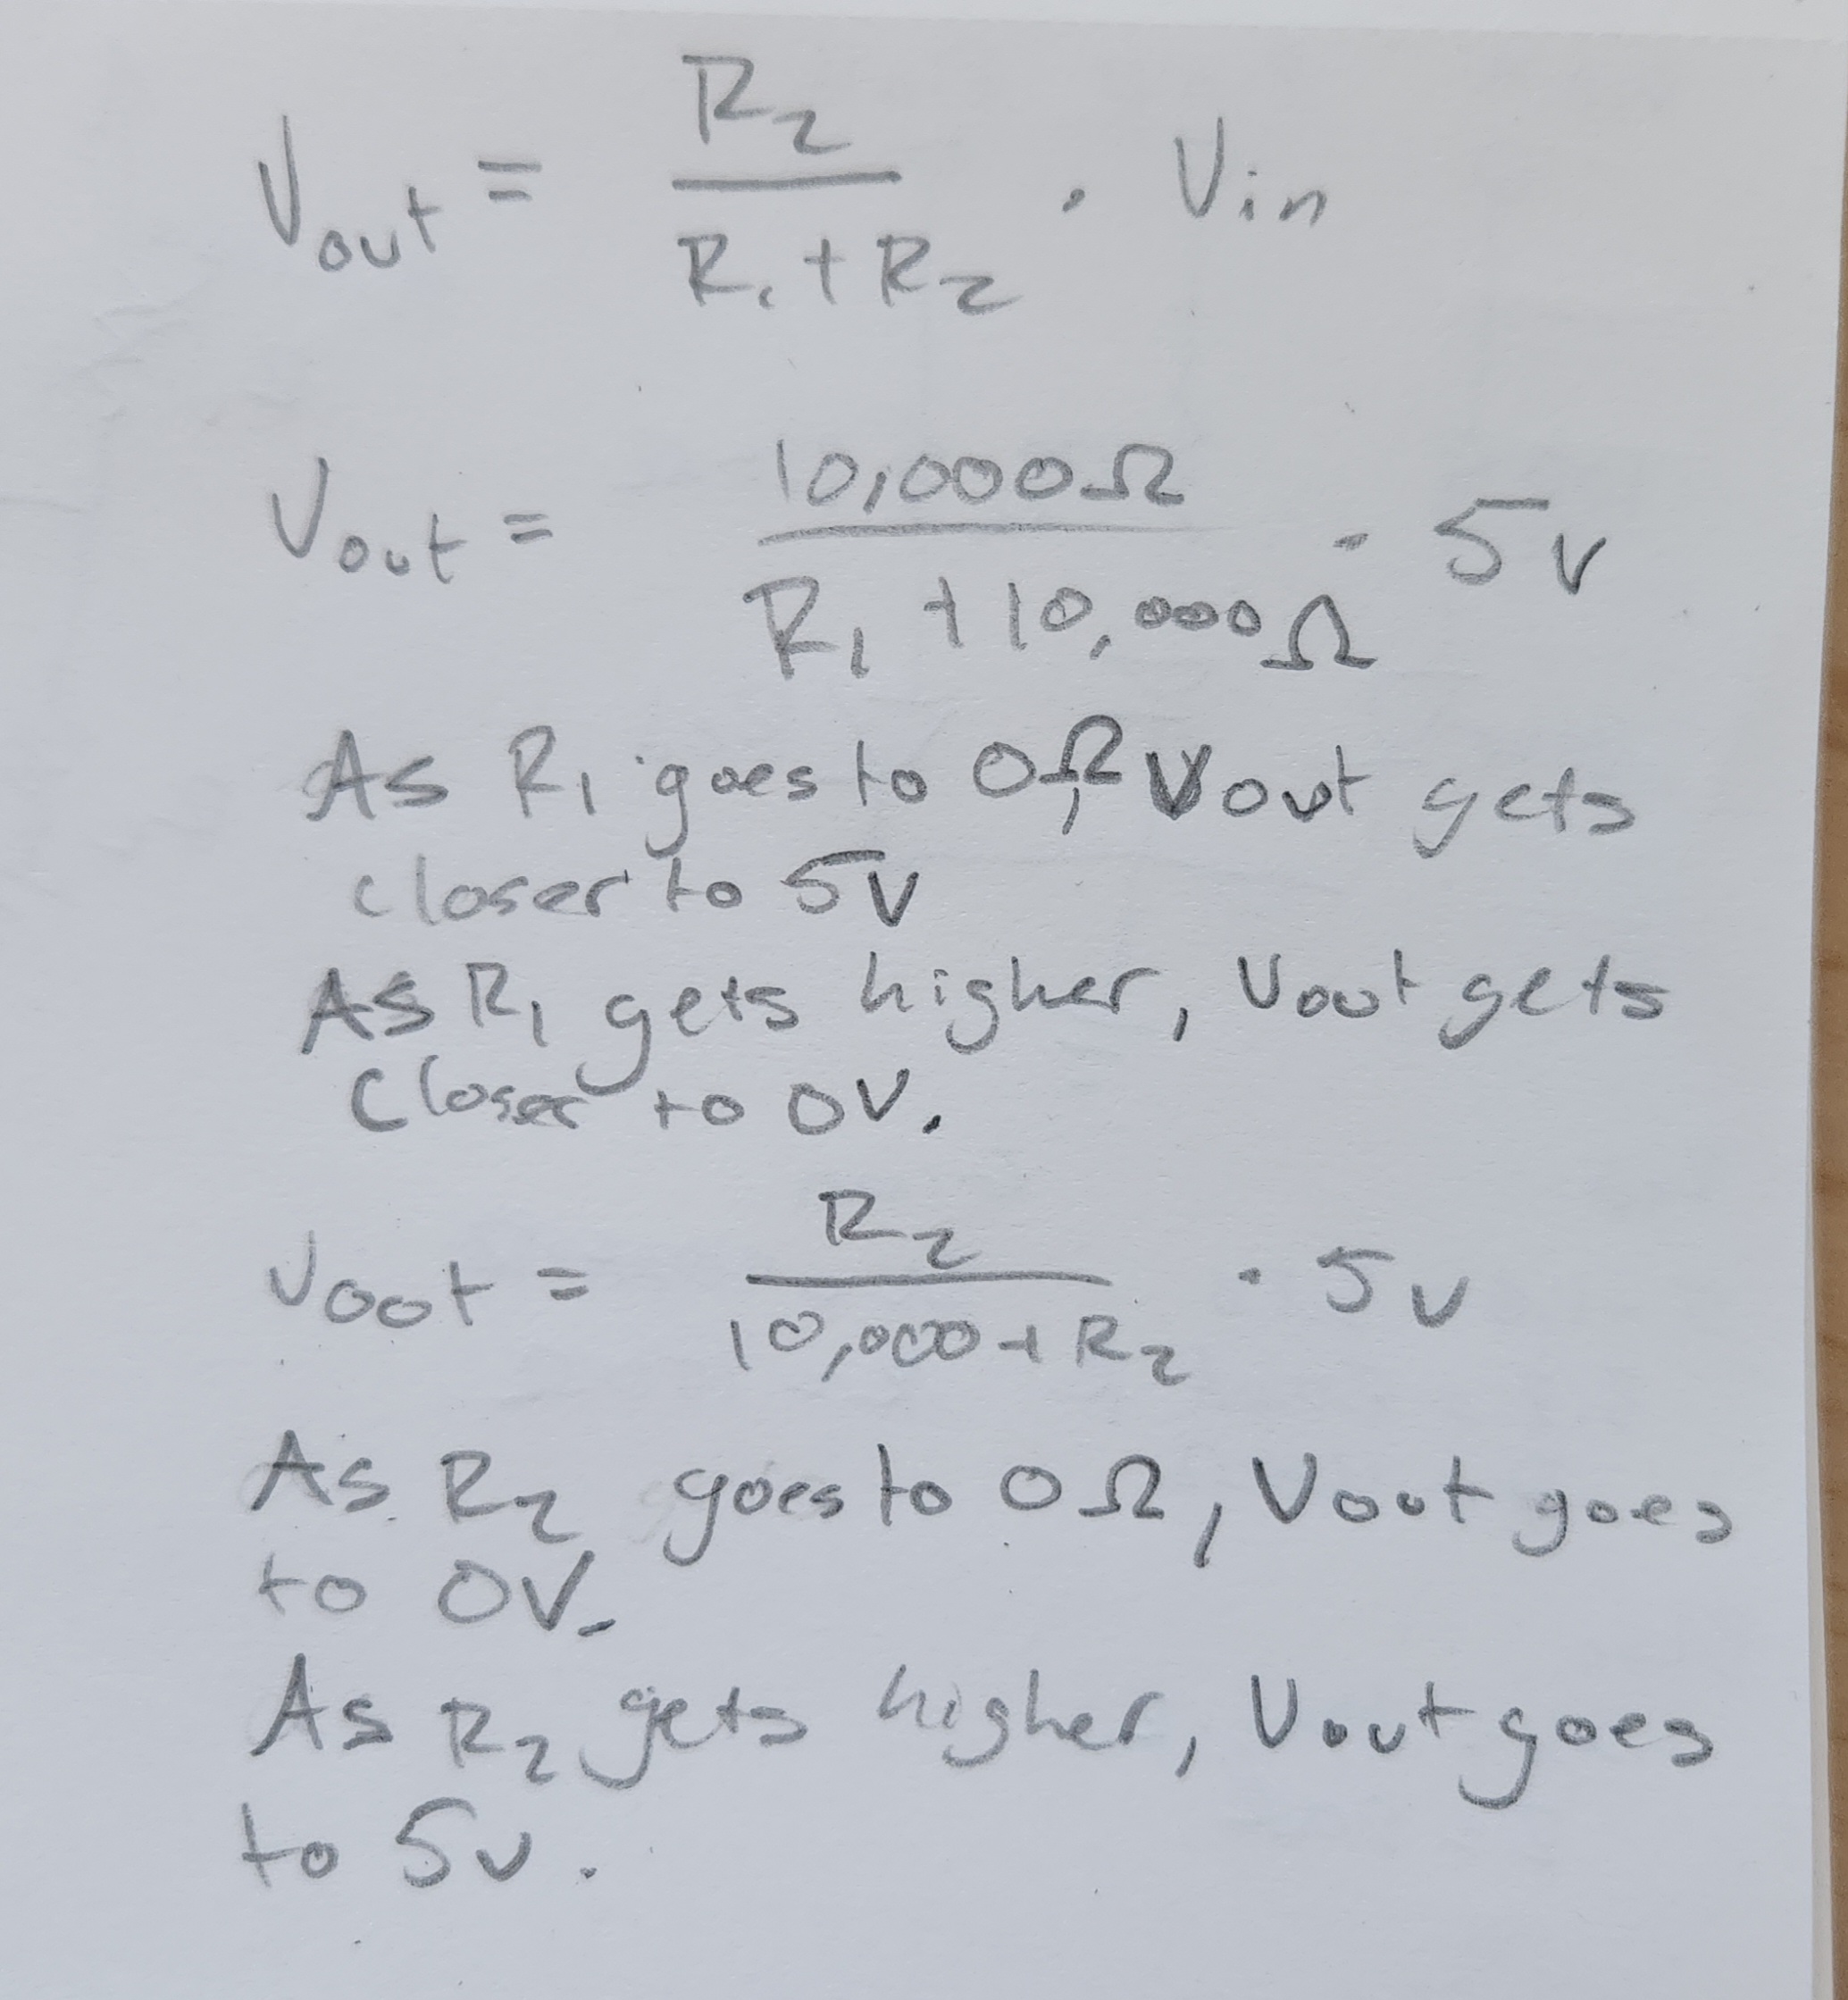 Vout = R2 / R1 + R2 · Vin
Vout = 10,000Ω / R1 + 10,000Ω · 5v
As R1 goes to 0Ω, Vout gets
closer to 5V
As R1 gets higher, Vout gets
closer to 0V.
Vout = R2 / 10,000 + R2 · 5v
As R2 goes to 0Ω, Vout goes
to 0V.
As R2 gets higher, Vout goes
to 5v.